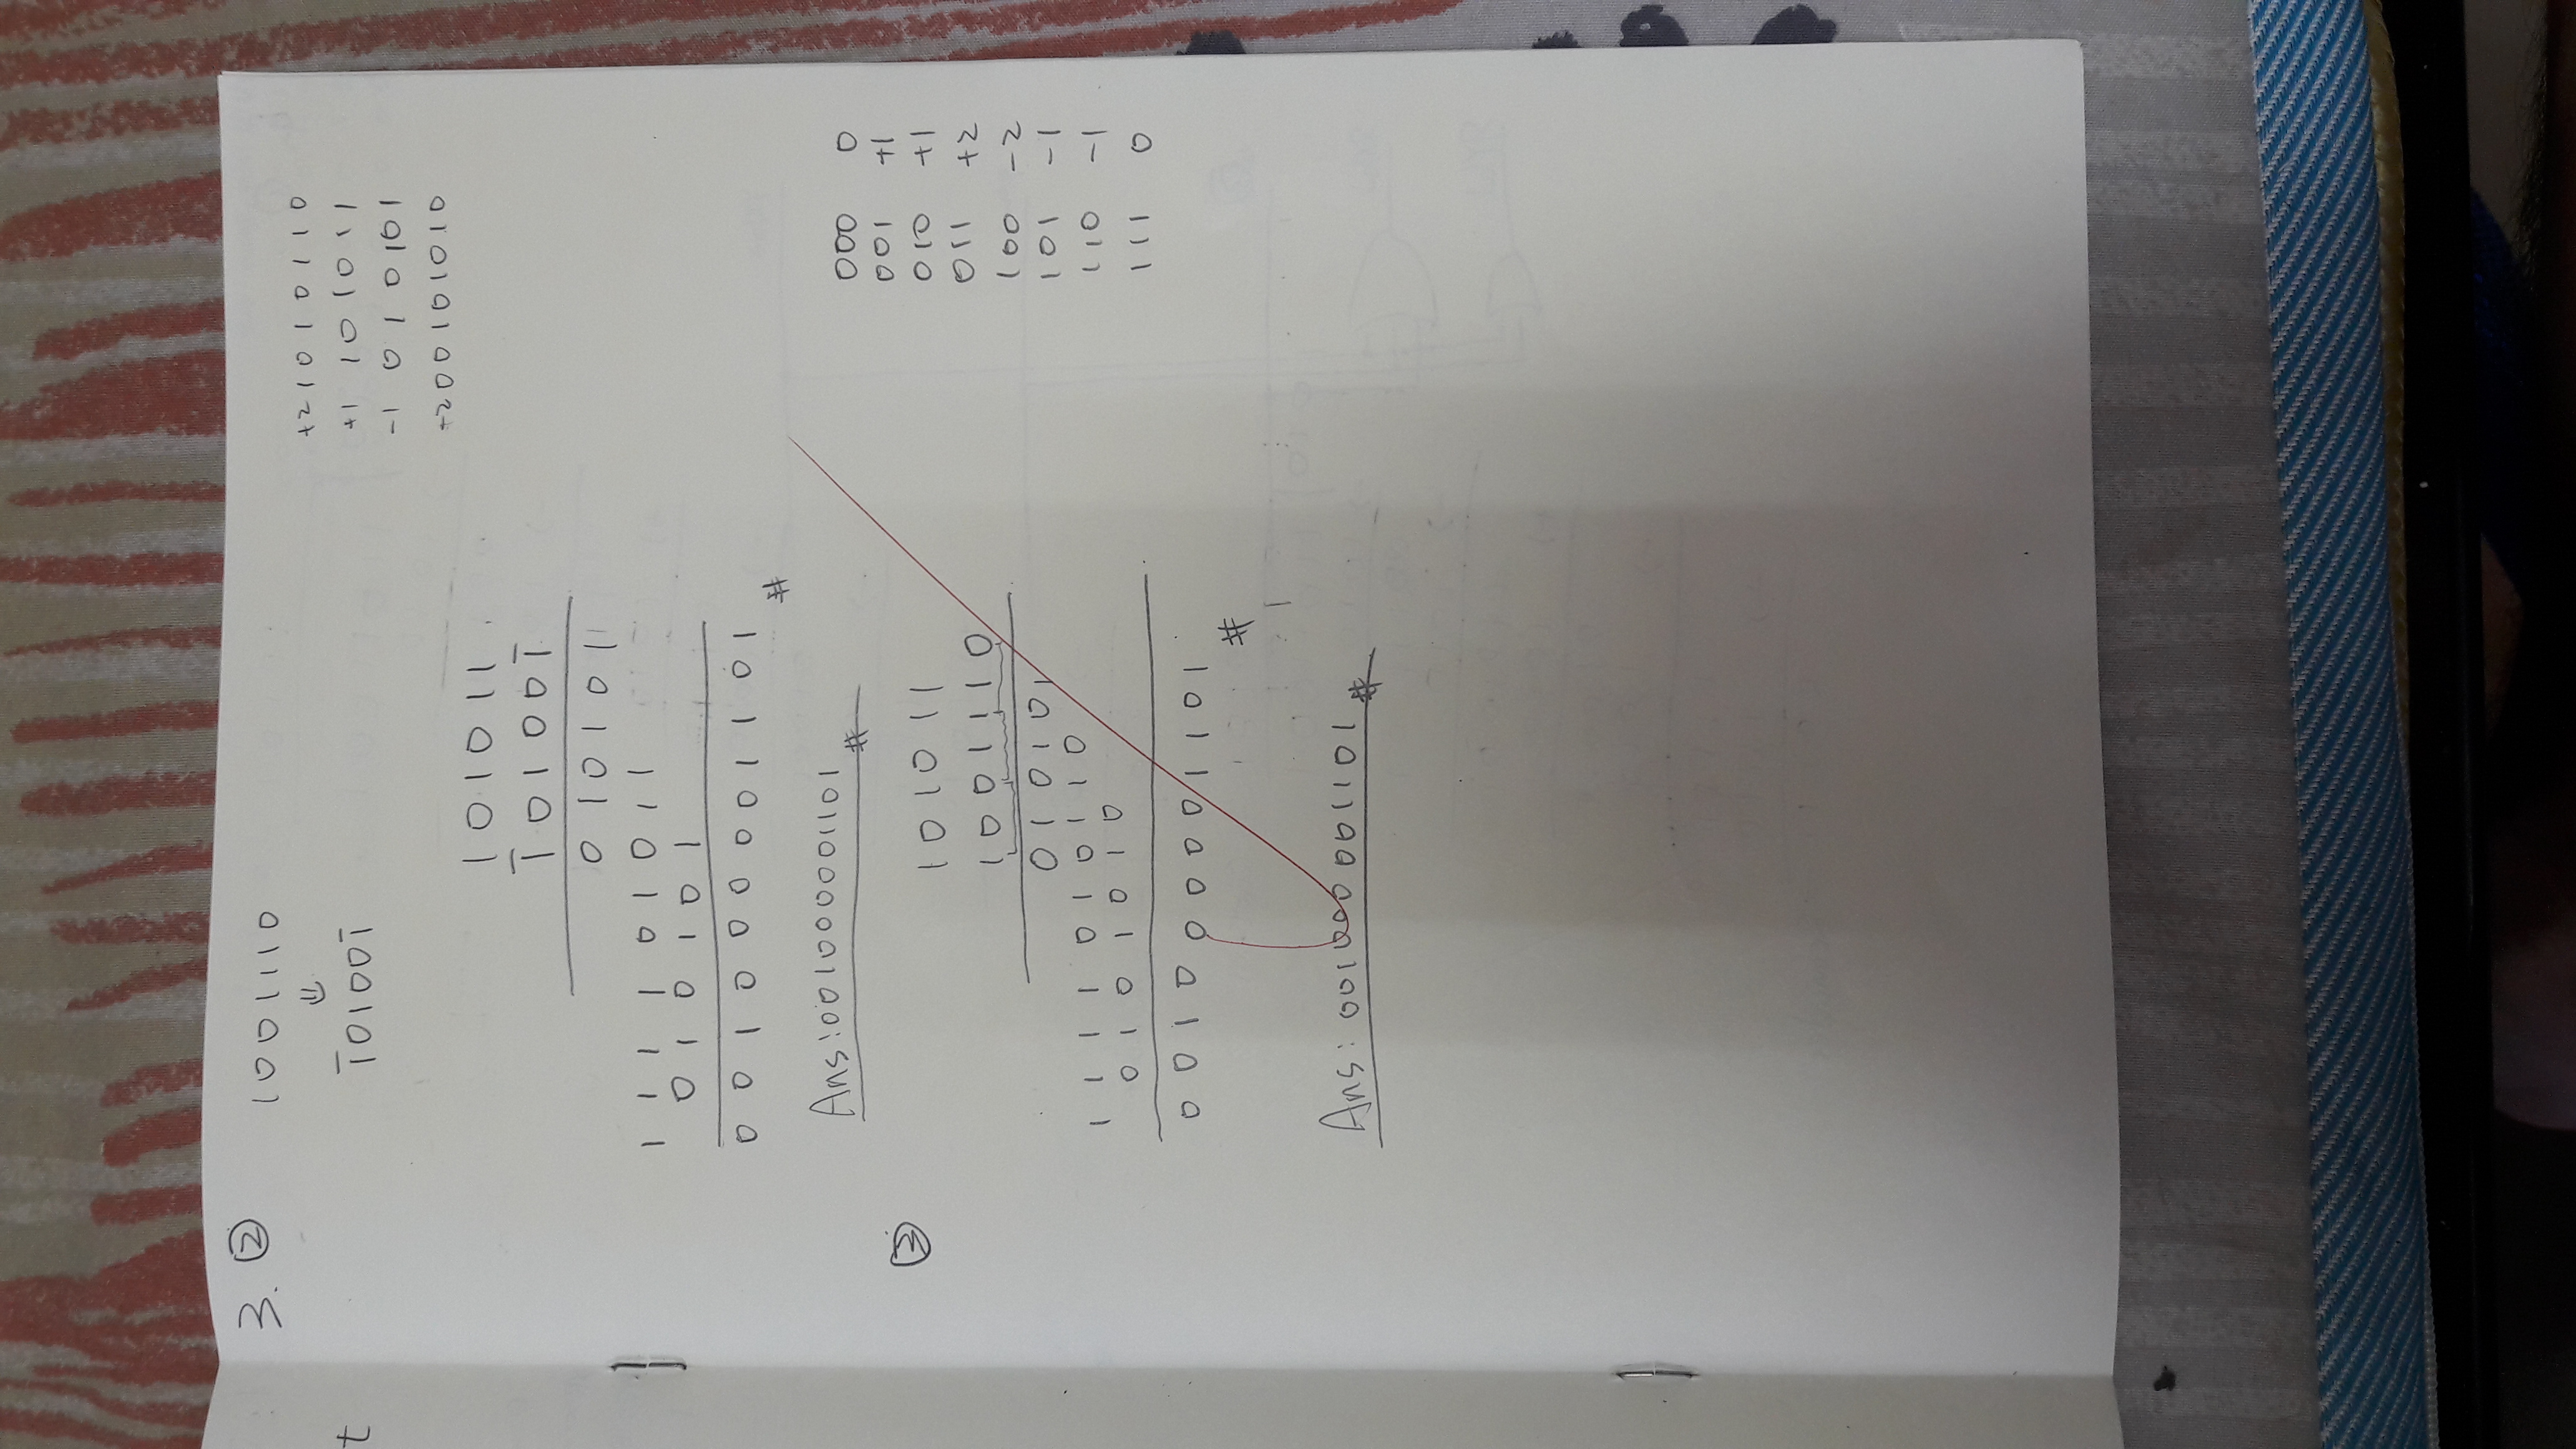 t
3. ②
1001110
⇓
1̅01001̅
+2 1010110
+1 101011
-1 010101
-2 00101010
101011
1̅01001̅
010101
111101011
010101
001000001101 #
Ans:001000001101 #
③
101011
1001110
010101
1111010110
0101010
001000001101 #
Ans: 001000001101 #
000 0
001 +1
010 +1
011 +2
100 -2
101 -1
110 -1
111 0